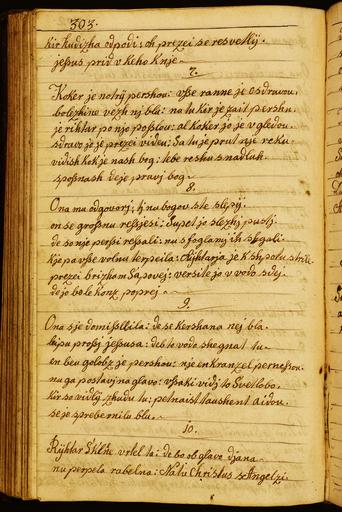 303.
kir hudizha odpodi: oh prezei se resvetlij.
jessus prid v keho knje
7.
Koker je notrij pershou: vsse ranne je osdravou,
bolezhine vezh nj blu: na tu kir je zait pershu,
je riktar po njo posslou: al koker jo je v gledou,
sdravo jo je prezei videu:
vidish kok je nash bog: tebe reshu s nadluh.
sposnash de je pravj bog
8.
Ona mu odgovorj: tj na bogov ste slepij.
on se grosnu ressjesi: supet jo slezhj pustj.
de so nje persi ressali: nu s foglamj ih shgali.
kje pa vsse volnu terpeila: Rihtarja je k shpotu strila
prezei brizham sapovej: versite jo v vodo sdej
de jo bo le konz poprej
9.
Ona sje domisslila: de se kershana nej bla.
leipu prossj jessusa: deb te vodo shegnat tu
en beu golobz je pershou: nje en kranzel pernessou.
na ga postavj na glavo: vssaki vidj to svetlobo.
kir so vidlij zhudu tu: petnaist taushent aidou,
se je sprebernilu blu
10.
Rihtar vrtel ta: de bo ob glavo djana
nu perpela rabelna: Natu Christus s Angelzi